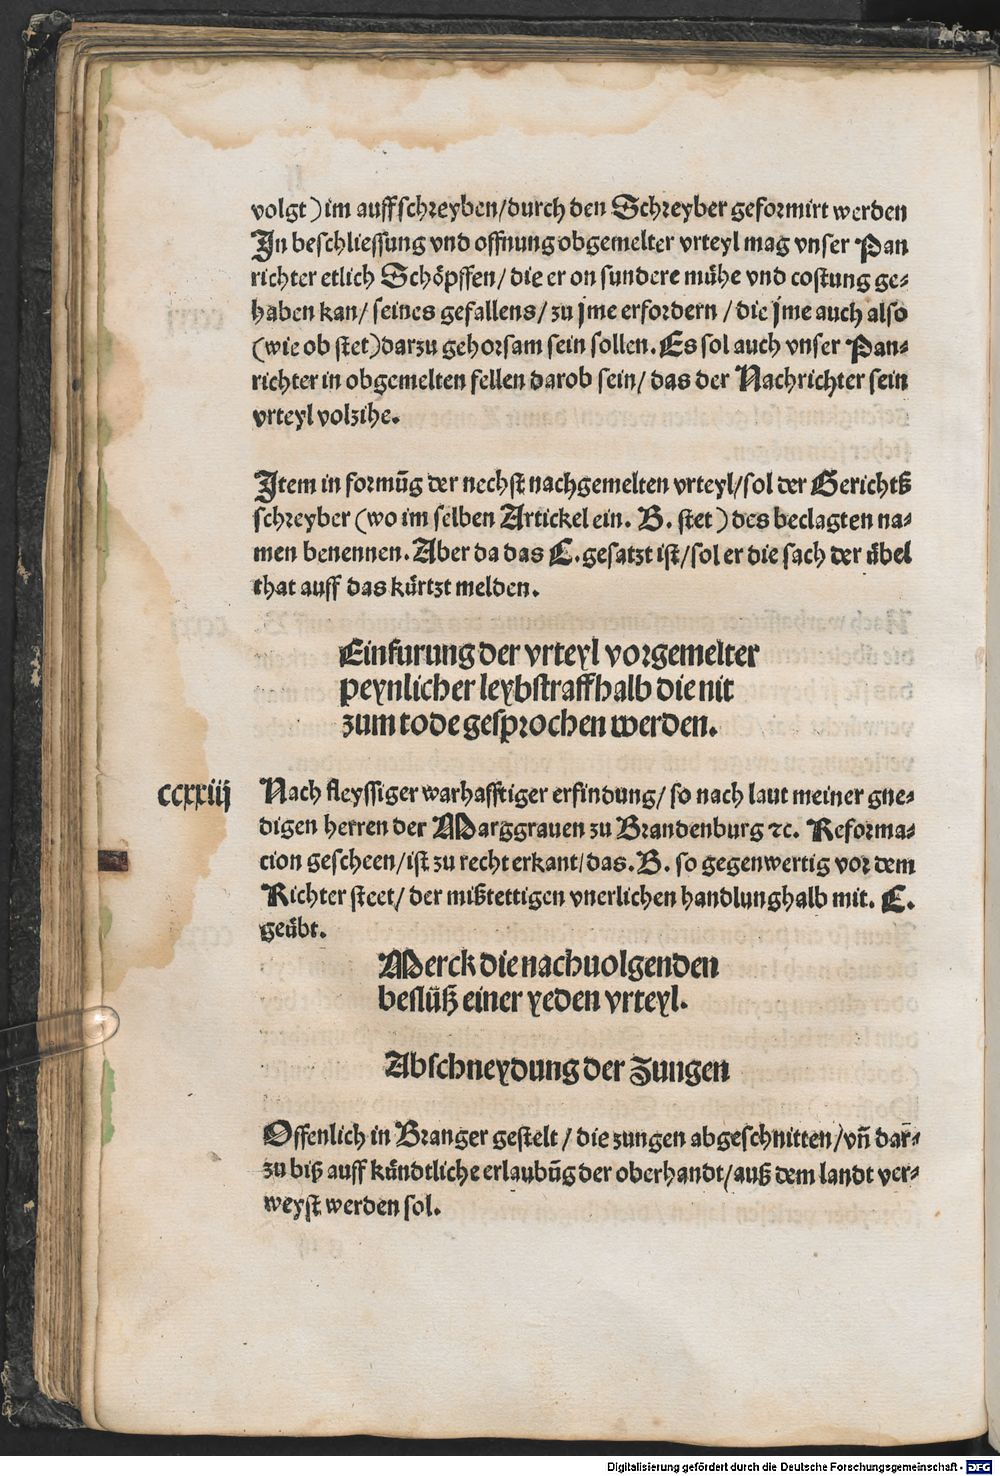 volgt) im auffschreyben/durch den Schreyber geformirt werden
Jn beschliessung vnd offnung obgemelter vrteyl mag vnser Pan
richter etlich Schöpffen/ die er on sundere mühe vnd costung ge⸗
haben kan/ seines gefallens/ zu jme erfordern / die jme auch also
(wie ob stet) darzu gehorsam sein sollen. Es sol auch vnser Pan⸗
richter in obgemelten fellen darob sein/ das der Nachrichter sein
vrteyl volzihe.
Jtem in formūg der nechst nachgemelten vrteyl/sol der Gerichtß
schreyber (wo im selben Artickel ein. B. stet) des beclagten na⸗
men benennen. Aber da das C. gesatzt ist/sol er die sach der übel
that auff das kürtzt melden.
Einfurung der vrteyl vorgemelter
peynlicher leybstraffhalb die nit
zum tode gesprochen werden.
ccxxiij Nach fleyssiger warhafftiger erfindung/ so nach laut meiner gne⸗
digen herren der Marggrauen zu Brandenburg ꝛc. Reforma⸗
cion gescheen/ist zu recht erkant/das. B. so gegenwertig vor dem
Richter steet/ der mißtettigen vnerlichen handlunghalb mit. C.
geübt.
Merck die nachuolgenden
beslüß einer yeden vrteyl.
Abschneydung der Zungen
Offenlich in Branger gestelt / die zungen abgeschnitten/vn̄ dar⸗
zu biß auff kündtliche erlaubūg der oberhandt/auß dem landt ver⸗
weyst werden sol.
Digitalisierung gefördert durch die Deutsche Forschungsgemeinschaft - DFG